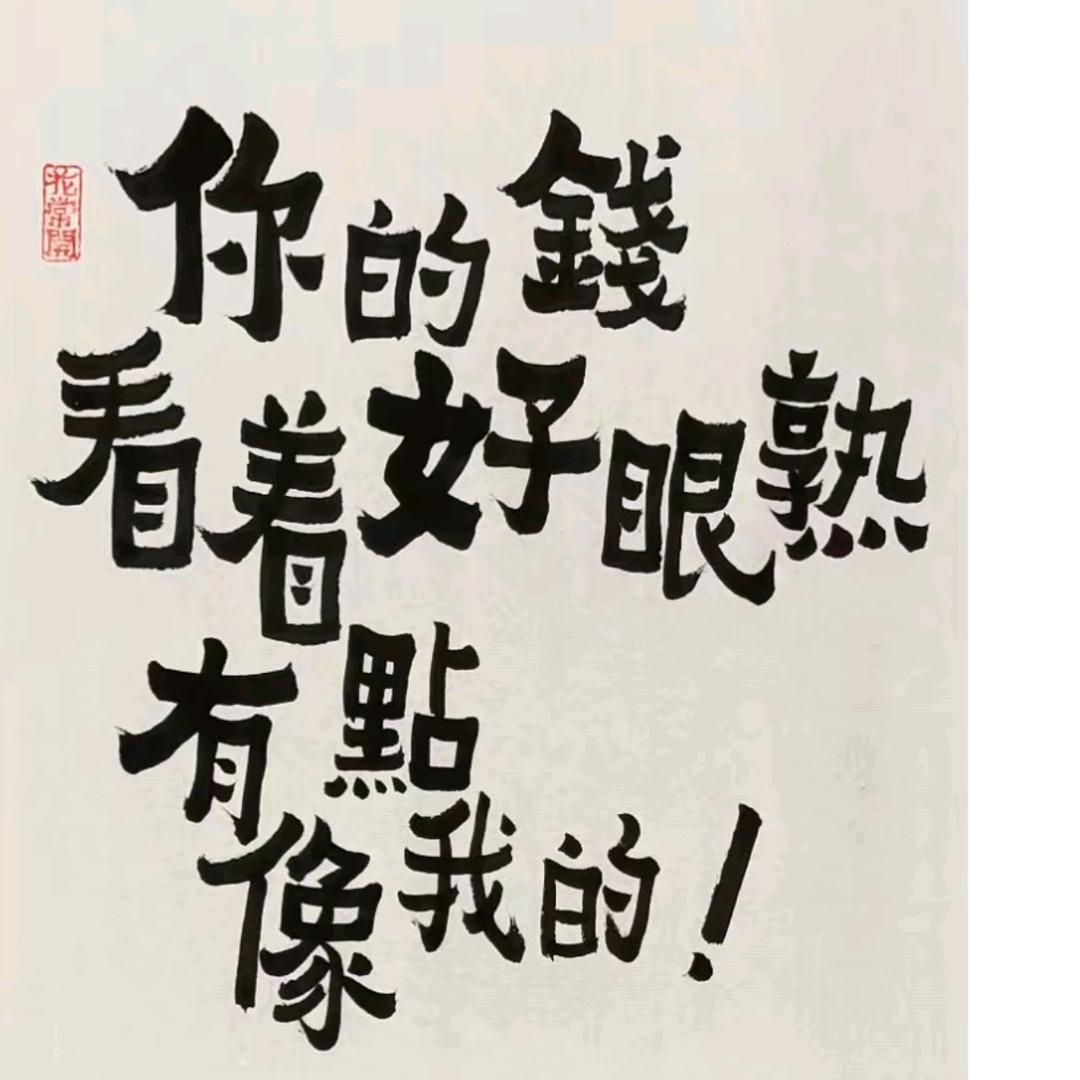 你的錢
看着好眼熟
有點
像我的！
花常開